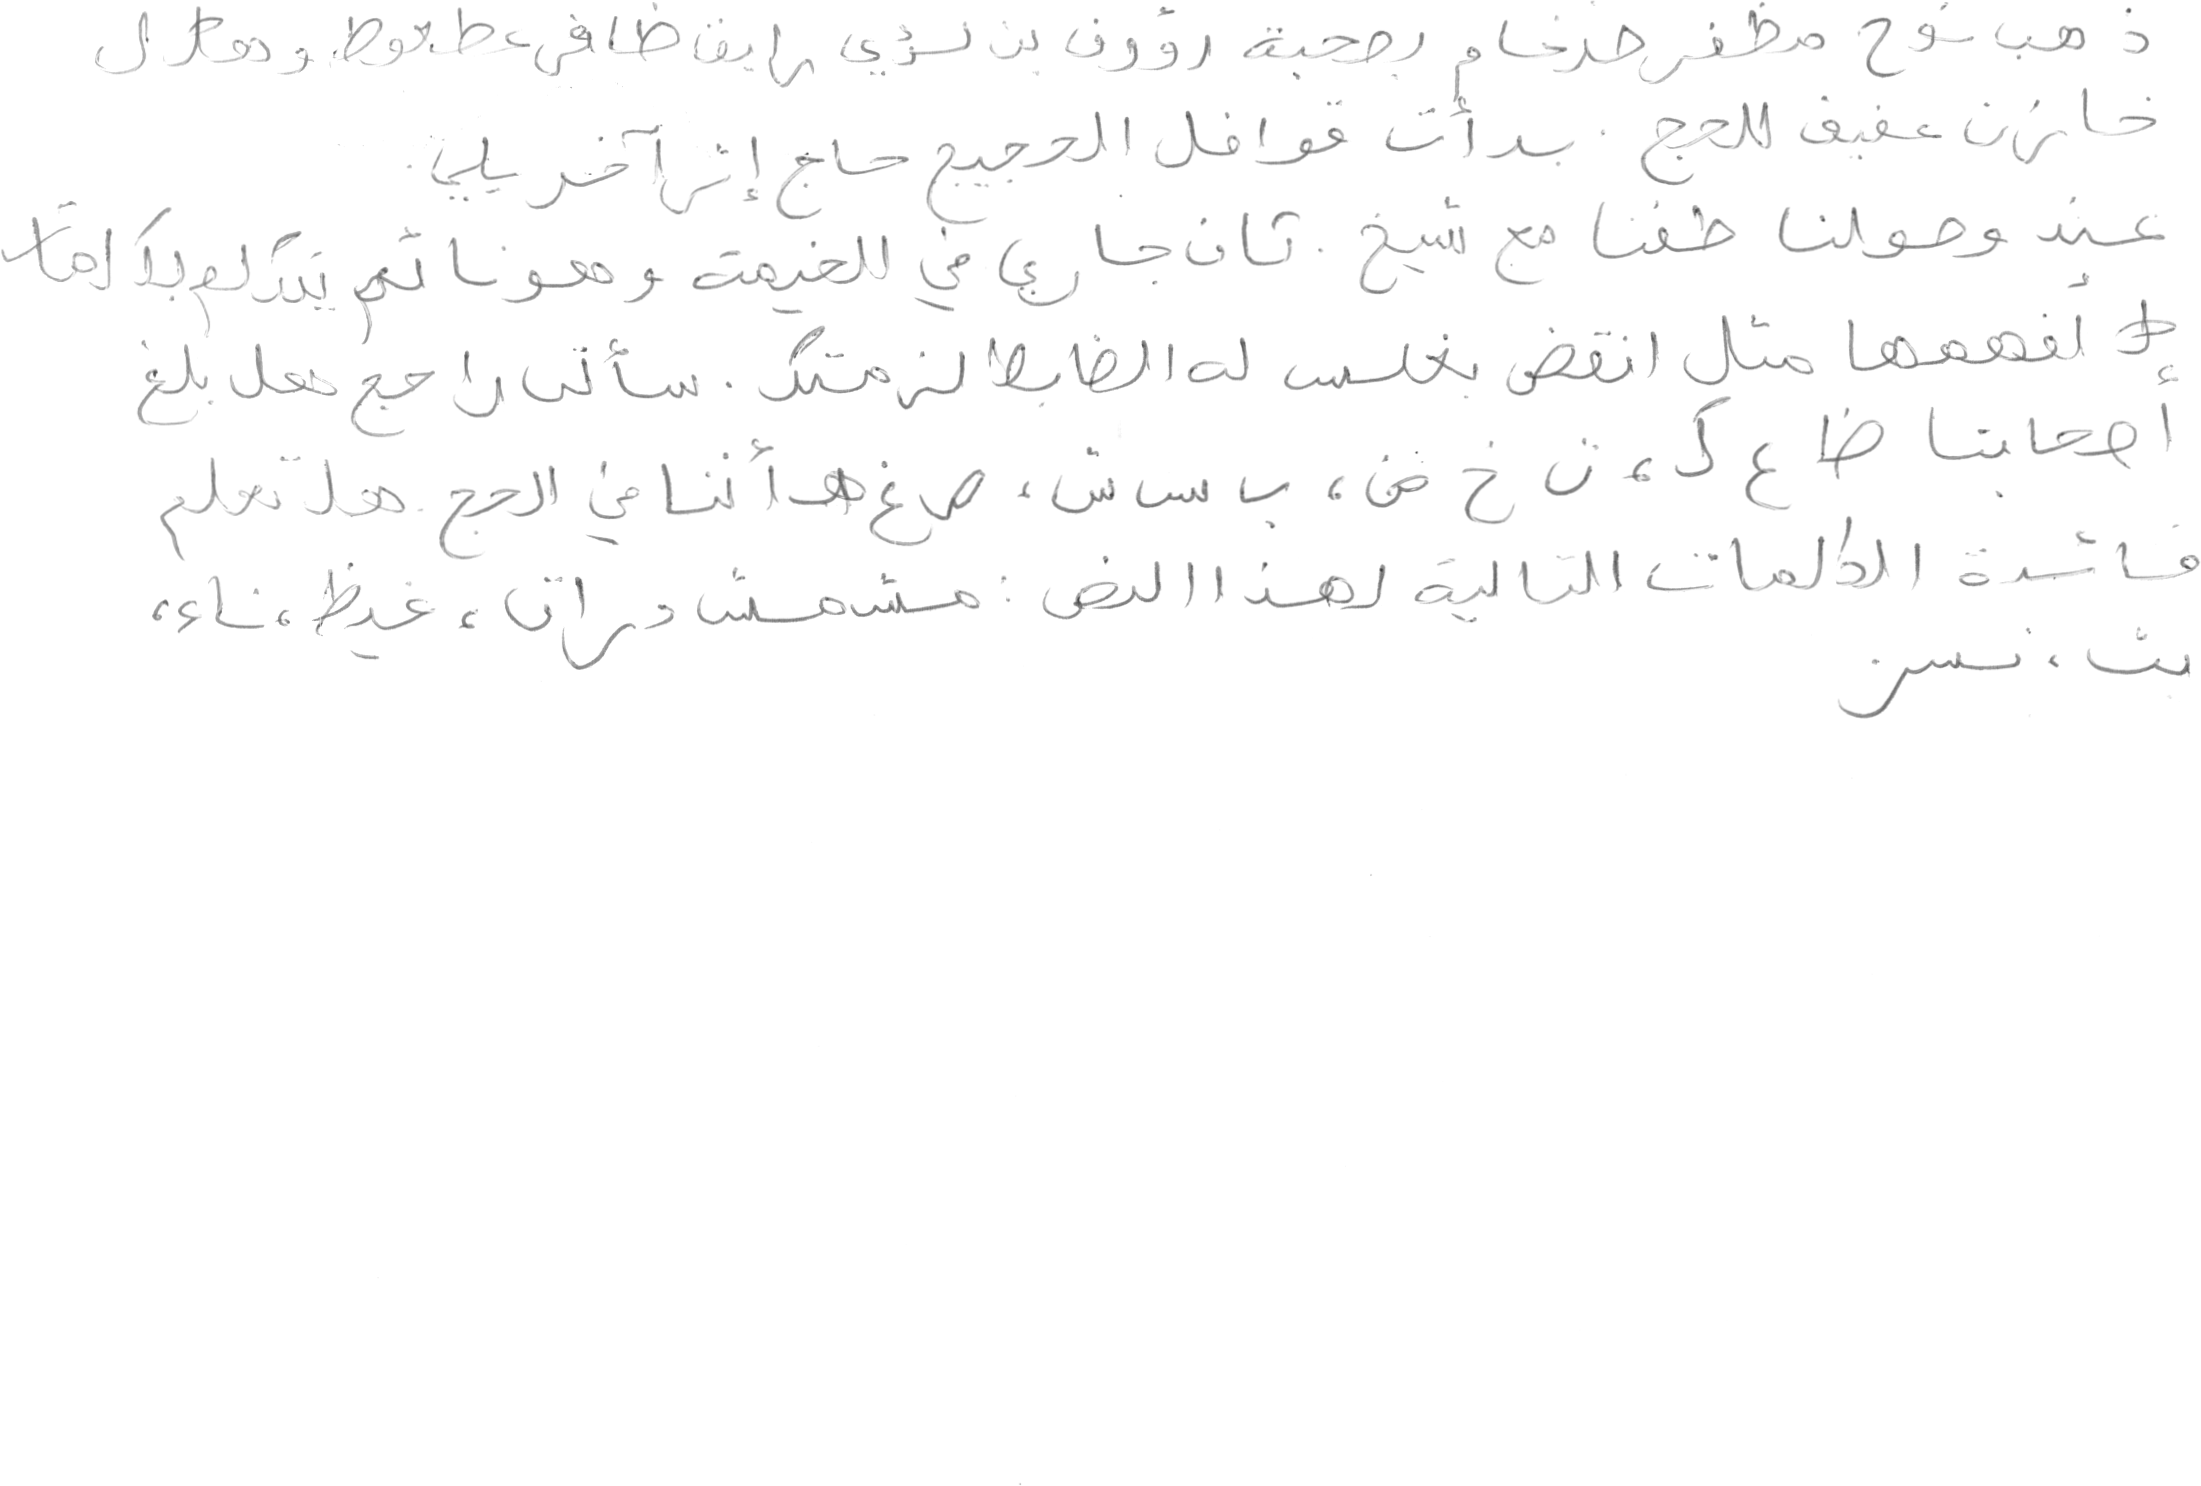 ذهب نوح مظفر ضرغام بصحبة رؤوف بن لؤي رايق ظافر عطعوط و هلال
خازن عفيف للحج . بدأت قوافل الحجيج حاج إثر آخر يلي .
عند وصولنا طفنا مع شيخ . كان جاري في الخيمة وهو نائم يتكلم بكلمات
لا أفهمها مثل انقض بغلس له الضابط لزمتك . سألني راجح هل بلغ
أصحابنا ظ ع ك ، ن خ ض ، ب س ش ، ص غ هـ أننا في الحج . هل تعلم
فائدة الكلمات التالية لهذا النص : مشمش دراق ، غيظ ، ناء ،
بث ، نسر